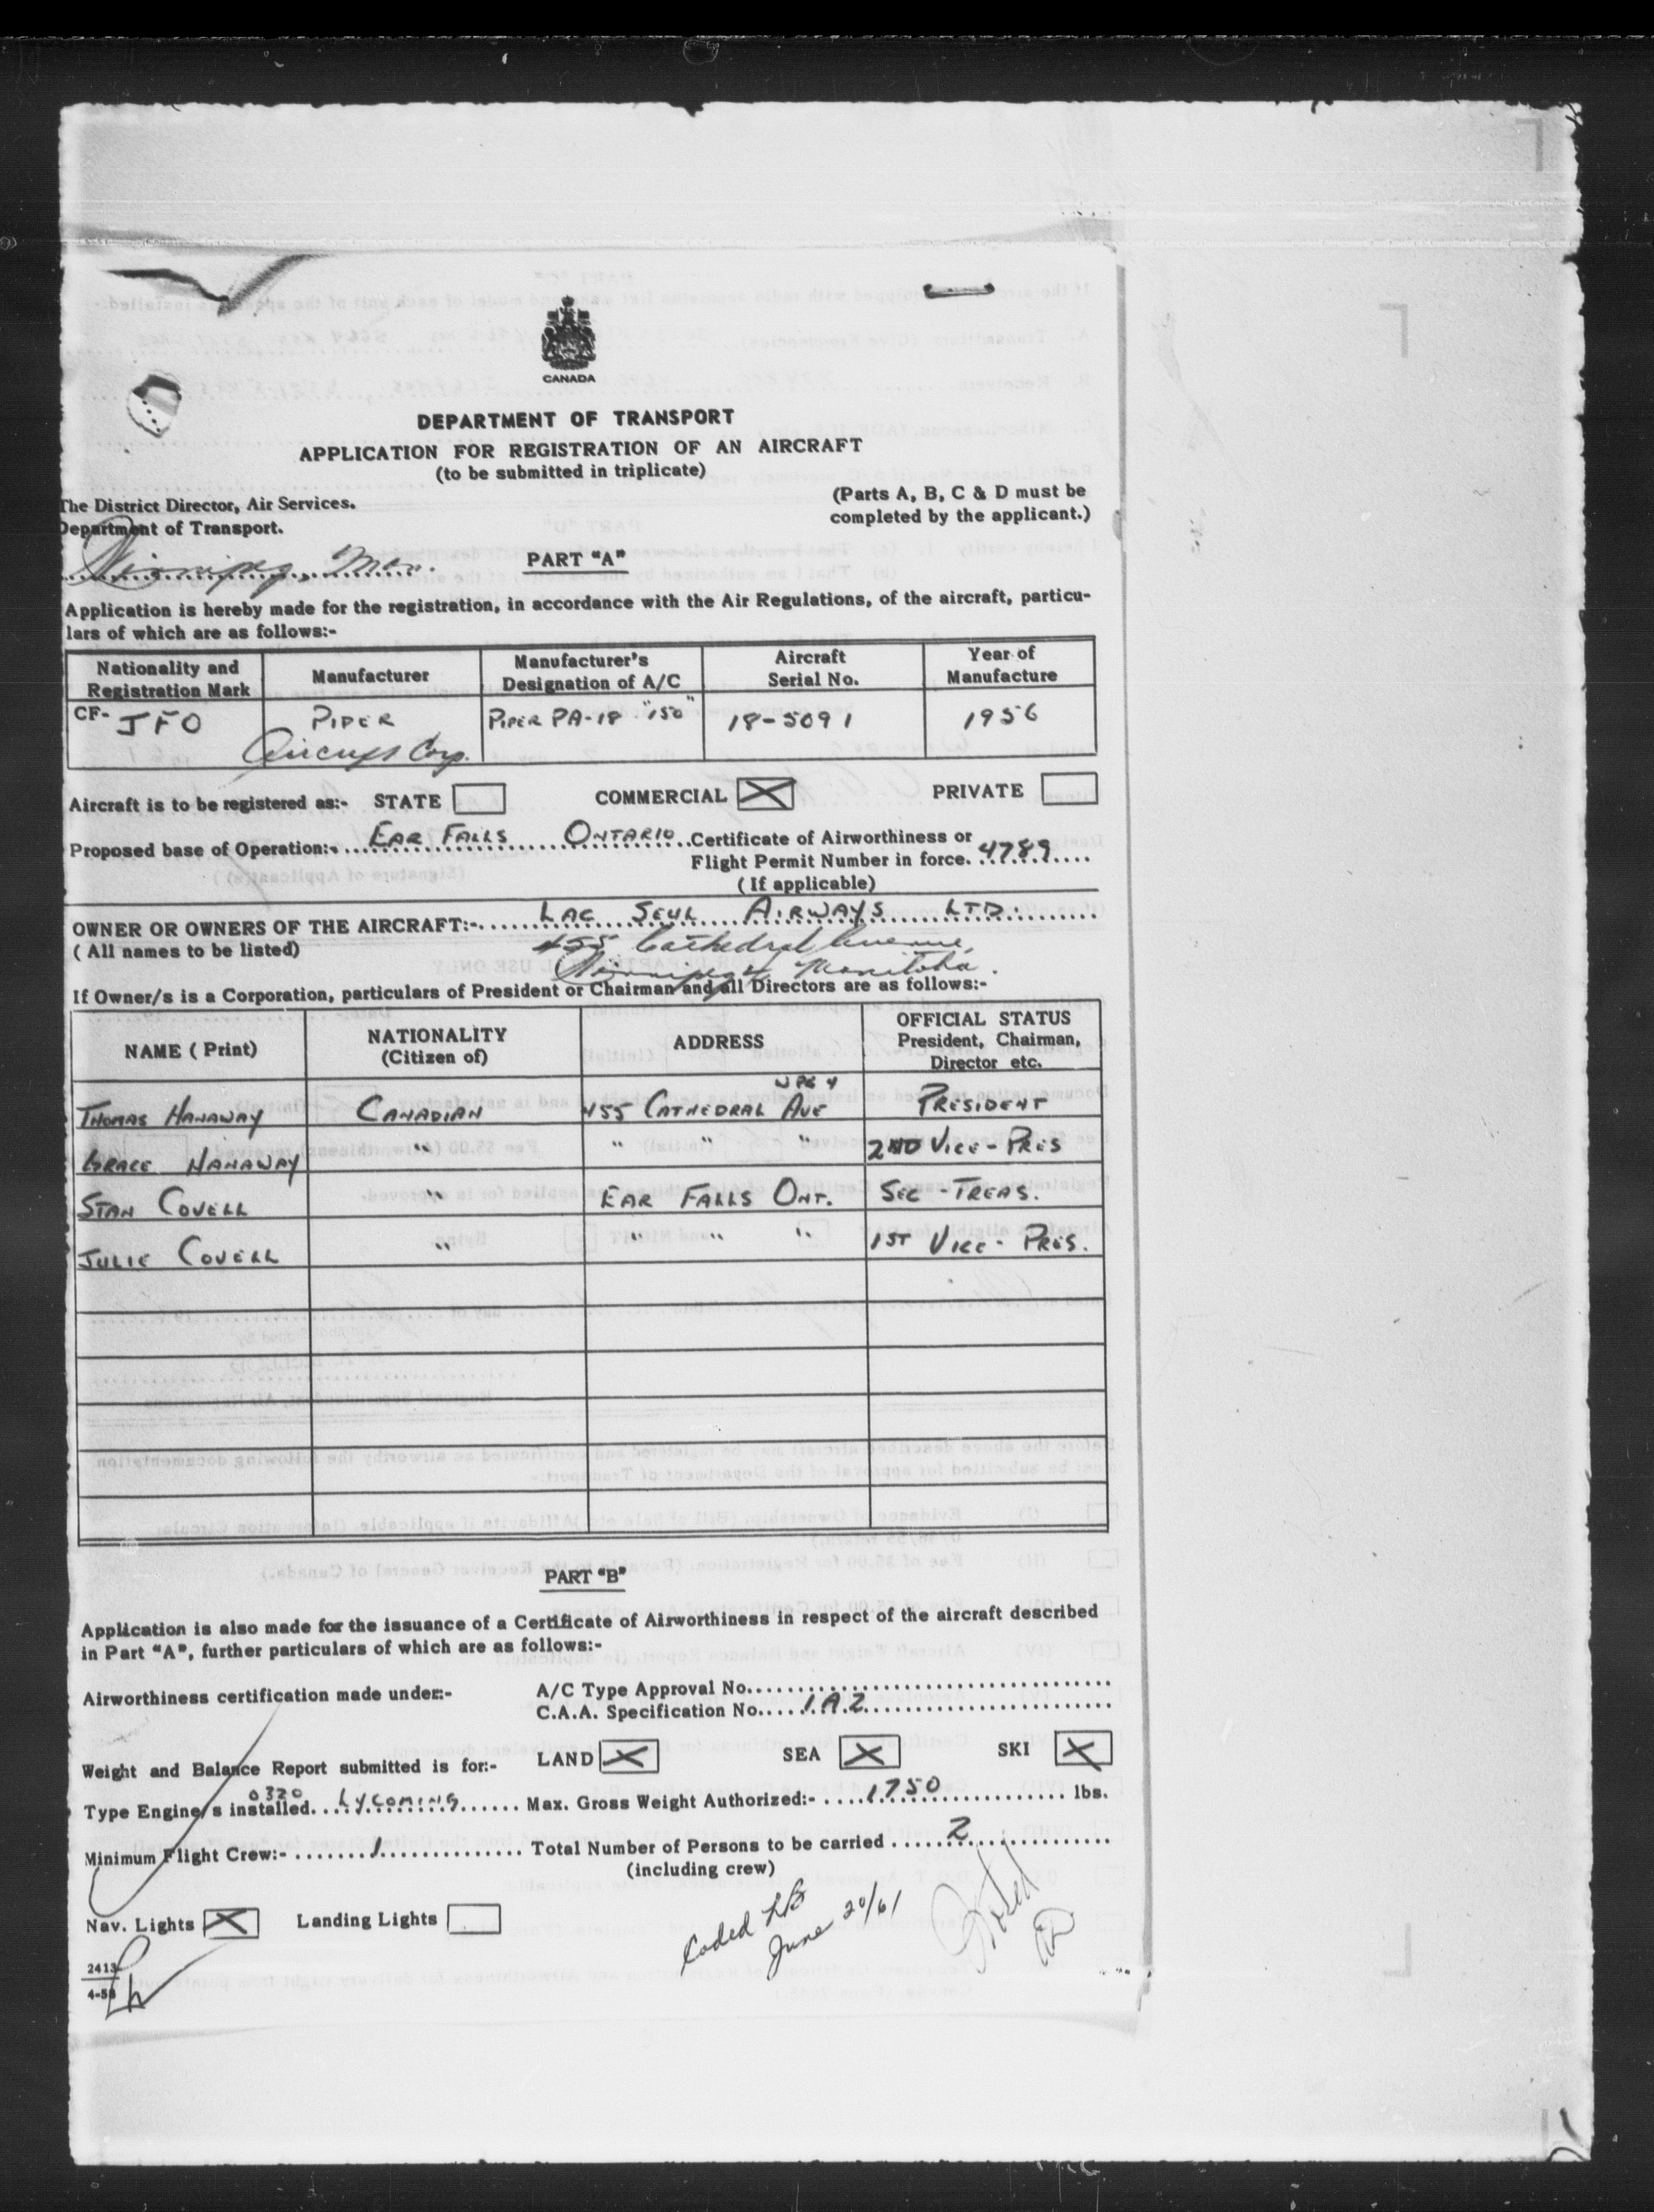 CANADA
DEPARTMENT OF TRANSPORT
APPLICATION FOR REGISTRATION OF AN AIRCRAFT
(to be submitted in triplicate)
The District Director, Air Services.
Department of Transport.
(Parts A, B, C & D must be
completed by the applicant.)
Winnipeg, Man.
PART "A"
Application is hereby made for the registration, in accordance with the Air Regulations, of the aircraft, particu-
lars of which are as follows:-
Nationality and Registration Mark Manufacturer Manufacturer's Designation of A/C Aircraft Serial No. Year of Manufacture
CF- JFO PIPER Aircraft Corp. PIPER PA-18 "150" 18-5091 1956
Aircraft is to be registered as:- STATE COMMERCIAL X PRIVATE
Proposed base of Operation:- EAR FALLS ONTARIO Certificate of Airworthiness or
Flight Permit Number in force. 4789
(If applicable)
OWNER OR OWNERS OF THE AIRCRAFT:- LAC SEUL AIRWAYS LTD.
(All names to be listed) 455 Cathedral Avenue,
Winnipeg 4, Manitoba.
If Owner/s is a Corporation, particulars of President or Chairman and all Directors are as follows:-
NAME (Print) NATIONALITY (Citizen of) ADDRESS OFFICIAL STATUS President, Chairman, Director etc.
WPG 4
THOMAS HANAWAY CANADIAN 455 CATHEDRAL AVE PRESIDENT
GRACE HANAWAY " " " " 2ND VICE-PRES
STAN COVELL " EAR FALLS ONT. SEC-TREAS.
JULIE COVELL " " " " 1ST VICE-PRES.
PART "B"
Application is also made for the issuance of a Certificate of Airworthiness in respect of the aircraft described
in Part "A", further particulars of which are as follows:-
Airworthiness certification made under:- A/C Type Approval No.
C.A.A. Specification No. 1.A.2.
Weight and Balance Report submitted is for:- LAND X SEA X SKI X
Type Engine/s installed. 0320 LYCOMING Max. Gross Weight Authorized:- 1750 lbs.
Minimum Flight Crew:- 1 Total Number of Persons to be carried 2
(including crew)
Nav. Lights X Landing Lights
Coded
June 20/61
2413
4-58